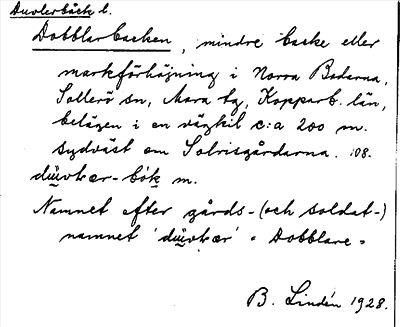 Duvlerbäck l.
Dobblarbacken, mindre backe eller
markförhöjning i Norra Bodarna,
Sollerö sn, Mora tg, Kopparb. län,
belägen i en vägkil c:a 200 m.
sydväst om Solrisgårdarna. :08.
dűvłær-bók m.
Namnet efter gårds-(och soldat-)
namnet 'dűvłær' = Dobblare =
B. Lindén 1928.